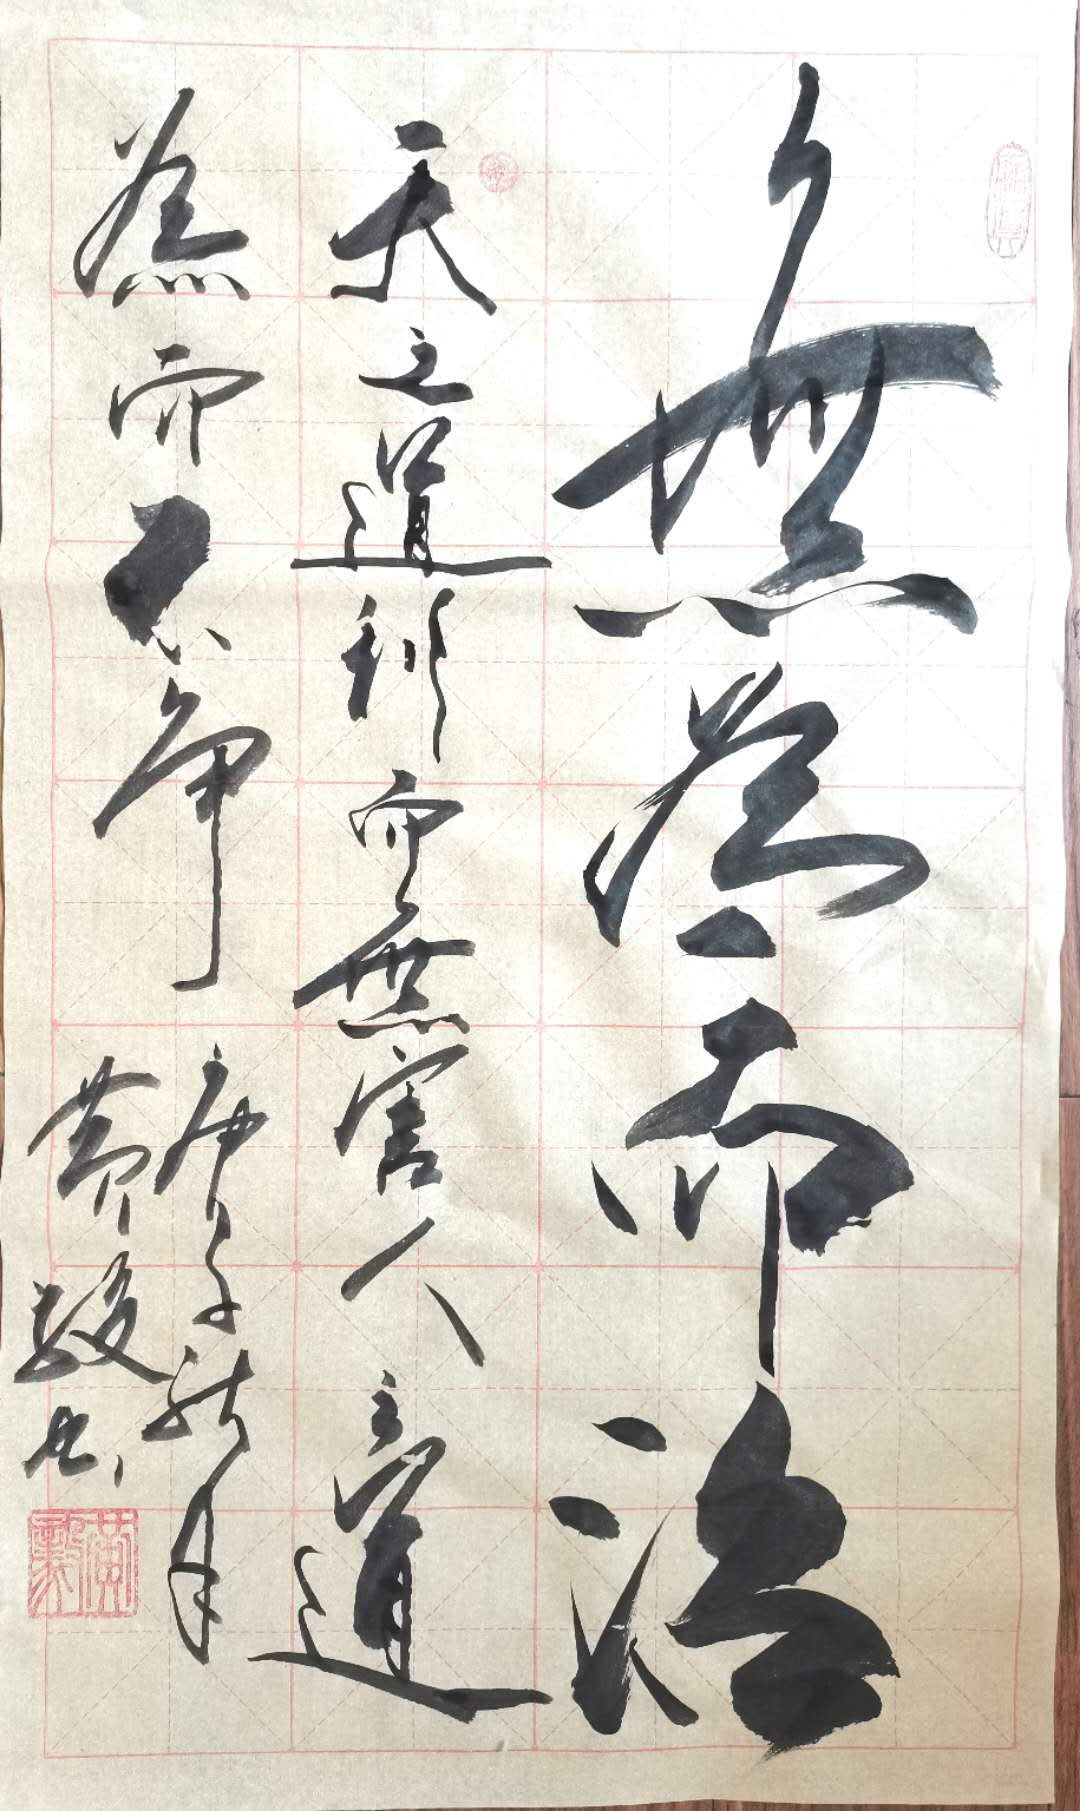 無為而治
天之道利而無害人之道
為而不争
庚子秋月
黄毅书